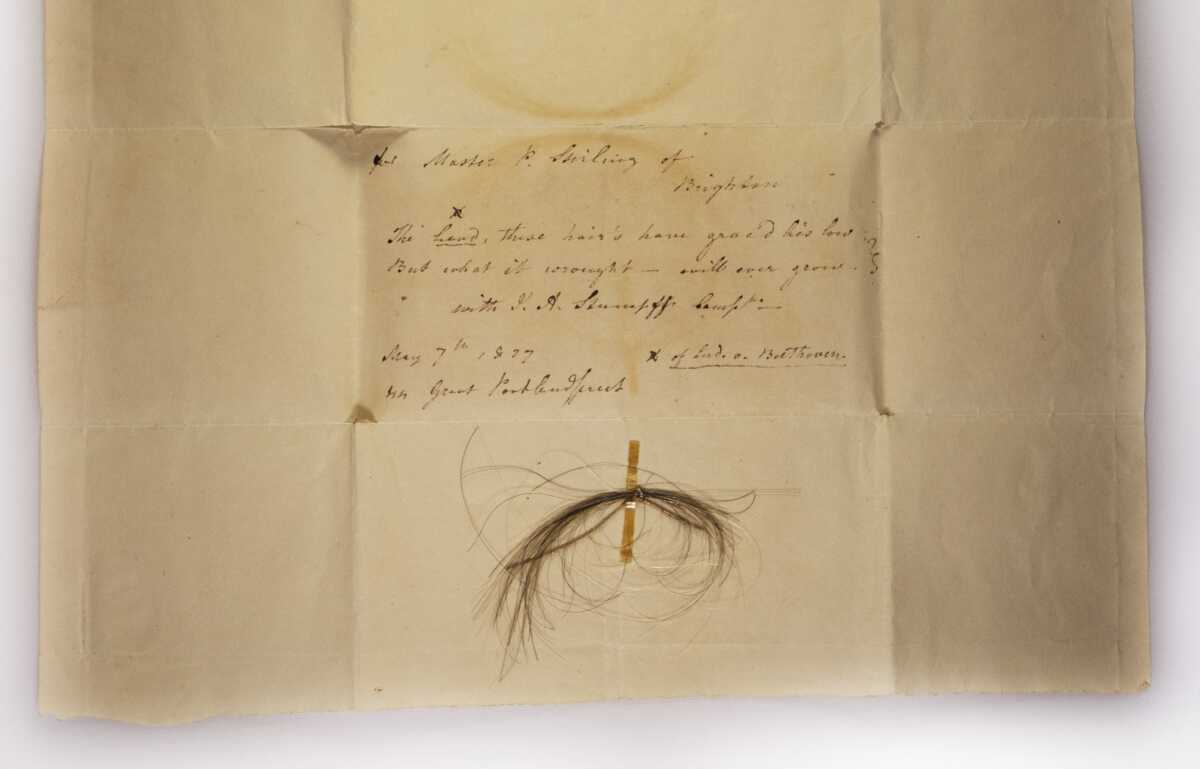 for Master P. Stirling of
Brighton
x
The head, these hair's have grac'd lies low
But what it wrought — will ever grow.
with J. A. Stumpff's Compts —
May 7th, 1827
x of Lud. v. Beethoven.
44 Great Portlandstreet